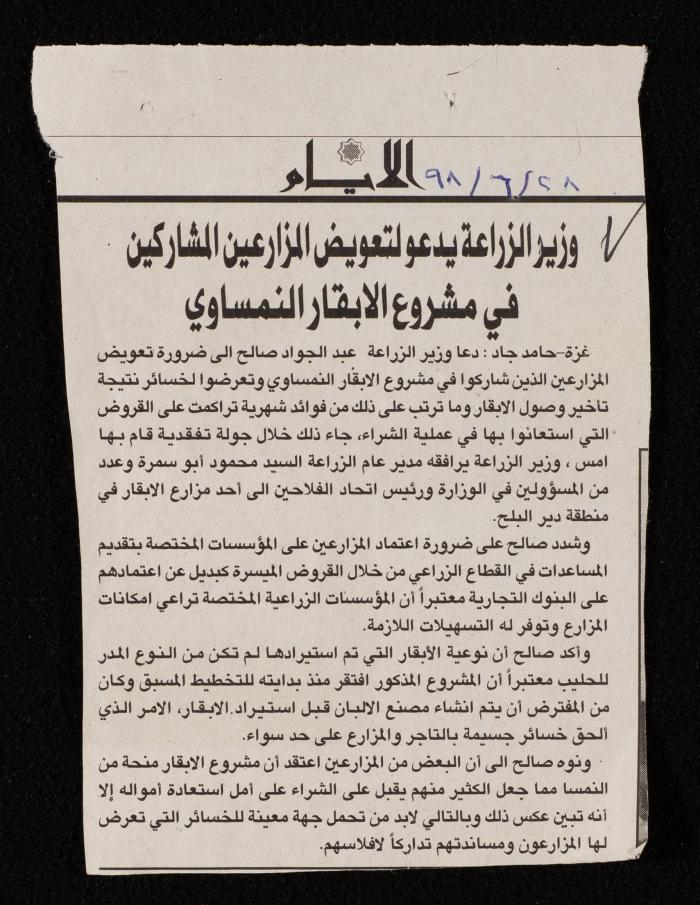 الايام
٩٨/٦/٢٨
وزير الزراعة يدعو لتعويض المزارعين المشاركين
في مشروع الابقار النمساوي
غزة–حامد جاد : دعا وزير الزراعة عبد الجواد صالح الى ضرورة تعويض
المزارعين الذين شاركوا في مشروع الابقار النمساوي وتعرضوا لخسائر نتيجة
تأخير وصول الابقار وما ترتب على ذلك من فوائد شهرية تراكمت على القروض
التي استعانوا بها في عملية الشراء، جاء ذلك خلال جولة تفقدية قام بها
امس ، وزير الزراعة يرافقه مدير عام الزراعة السيد محمود أبو سمرة وعدد
من المسؤولين في الوزارة ورئيس اتحاد الفلاحين الى أحد مزارع الابقار في
منطقة دير البلح.
وشدد صالح على ضرورة اعتماد المزارعين على المؤسسات المختصة بتقديم
المساعدات في القطاع الزراعي من خلال القروض الميسرة كبديل عن اعتمادهم
على البنوك التجارية معتبراً أن المؤسسات الزراعية المختصة تراعي امكانات
المزارع وتوفر له التسهيلات اللازمة.
وأكد صالح أن نوعية الأبقار التي تم استيرادها لم تكن من النوع المدر
للحليب معتبراً أن المشروع المذكور افتقر منذ بدايته للتخطيط المسبق وكان
من المفترض أن يتم انشاء مصنع الالبان قبل استيراد الابقار، الامر الذي
ألحق خسائر جسيمة بالتاجر والمزارع على حد سواء.
ونوه صالح الى أن البعض من المزارعين اعتقد أن مشروع الابقار منحة من
النمسا مما جعل الكثير منهم يقبل على الشراء على أمل استعادة أمواله إلا
أنه تبين عكس ذلك وبالتالي لابد من تحمل جهة معينة للخسائر التي تعرض
لها المزارعون ومساندتهم تداركاً لافلاسهم.